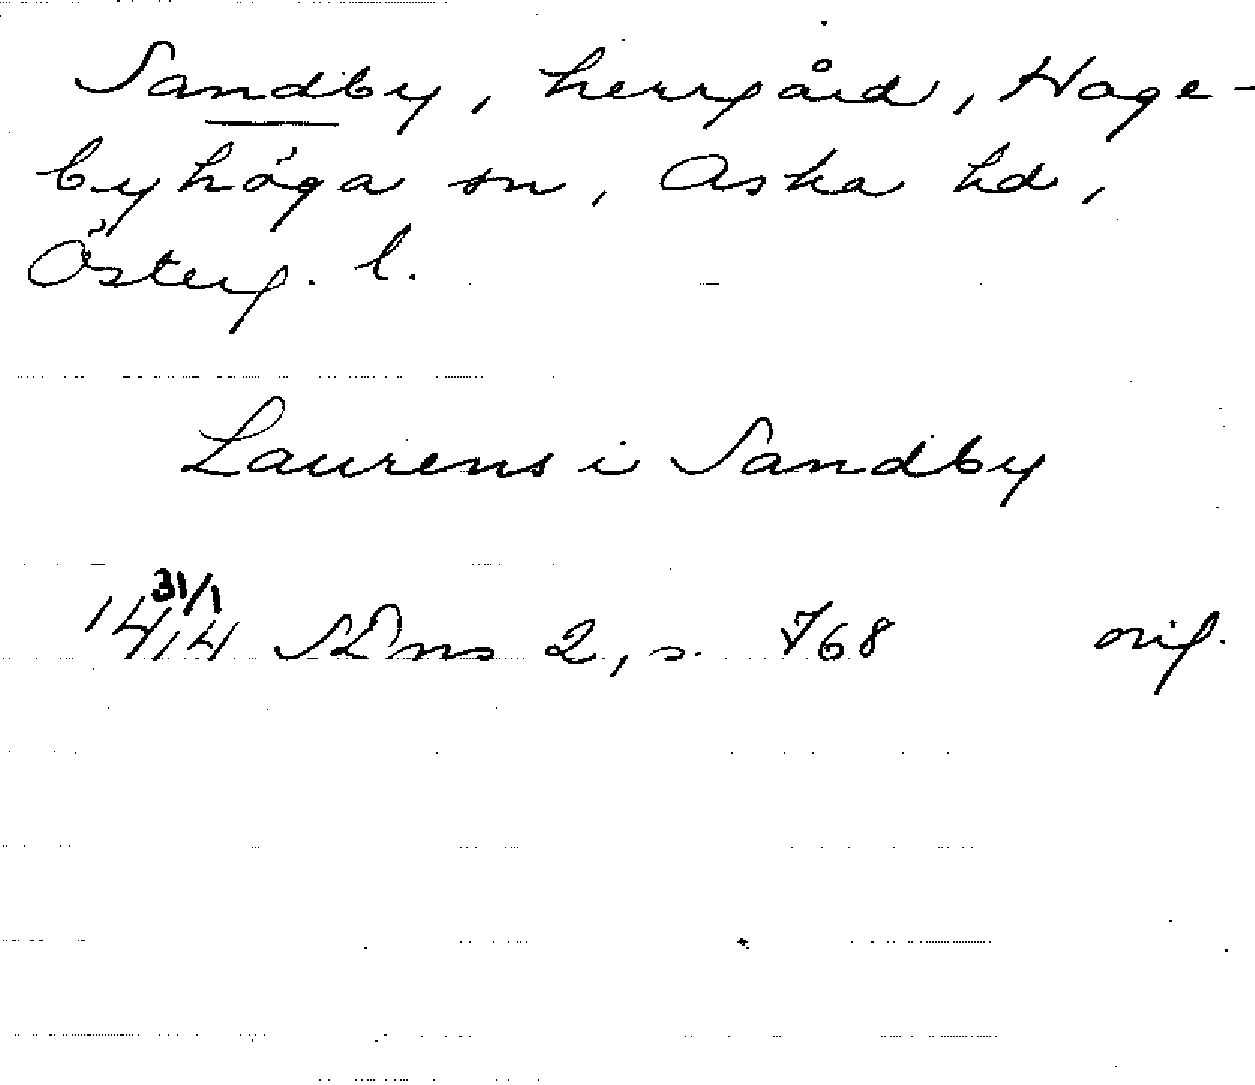 Sandby, herrgård, Hage-
byhöga sn, Aska hd,
Österg. l.
Laurens i Sandby
31/1
1414 SDns 2, s. 768 orig.